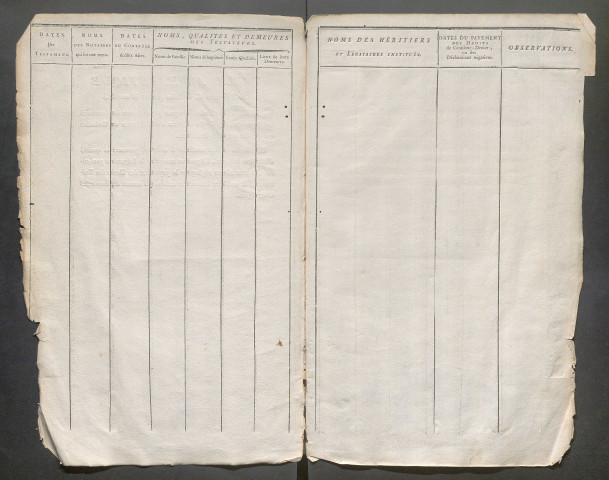 DATES
des
TESTAMENS.
NOMS
DES NOTAIRES
qui les ont reçus.
DATES
DU CONTRÔLE
desdits Actes.
NOMS, QUALITÉS ET DEMEURES
DES TESTATEURS.
Noms de famille.
Noms de baptême.
Leurs Qualités.
Lieux de leurs
Demeures.
NOMS DES HÉRITIERS
ET LÉGATAIRES INSTITUÉS.
DATES DU PAYEMENT
DES DROITS
de Centième Denier,
ou des
Déclarations négatives.
OBSERVATIONS.